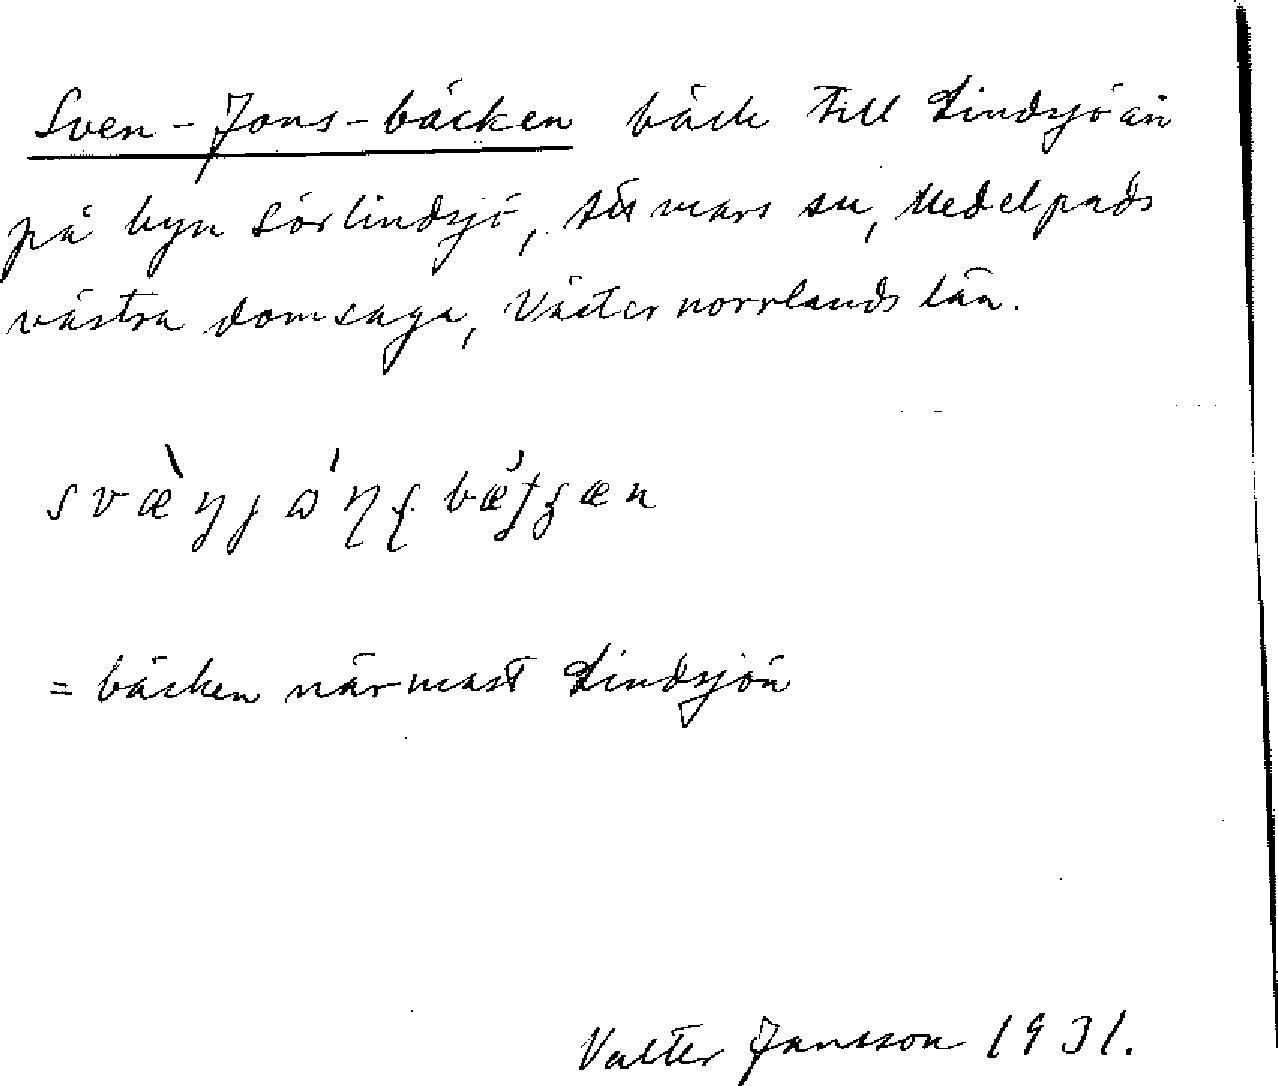 Sven-Jons-bäcken bäck till Lindsjöån
på byn Sörlindsjö, Attmars sn, Medelpads
västra domsaga, Västernorrlands län.
= bäcken närmast Lindsjön
Valter Jansson 1931.